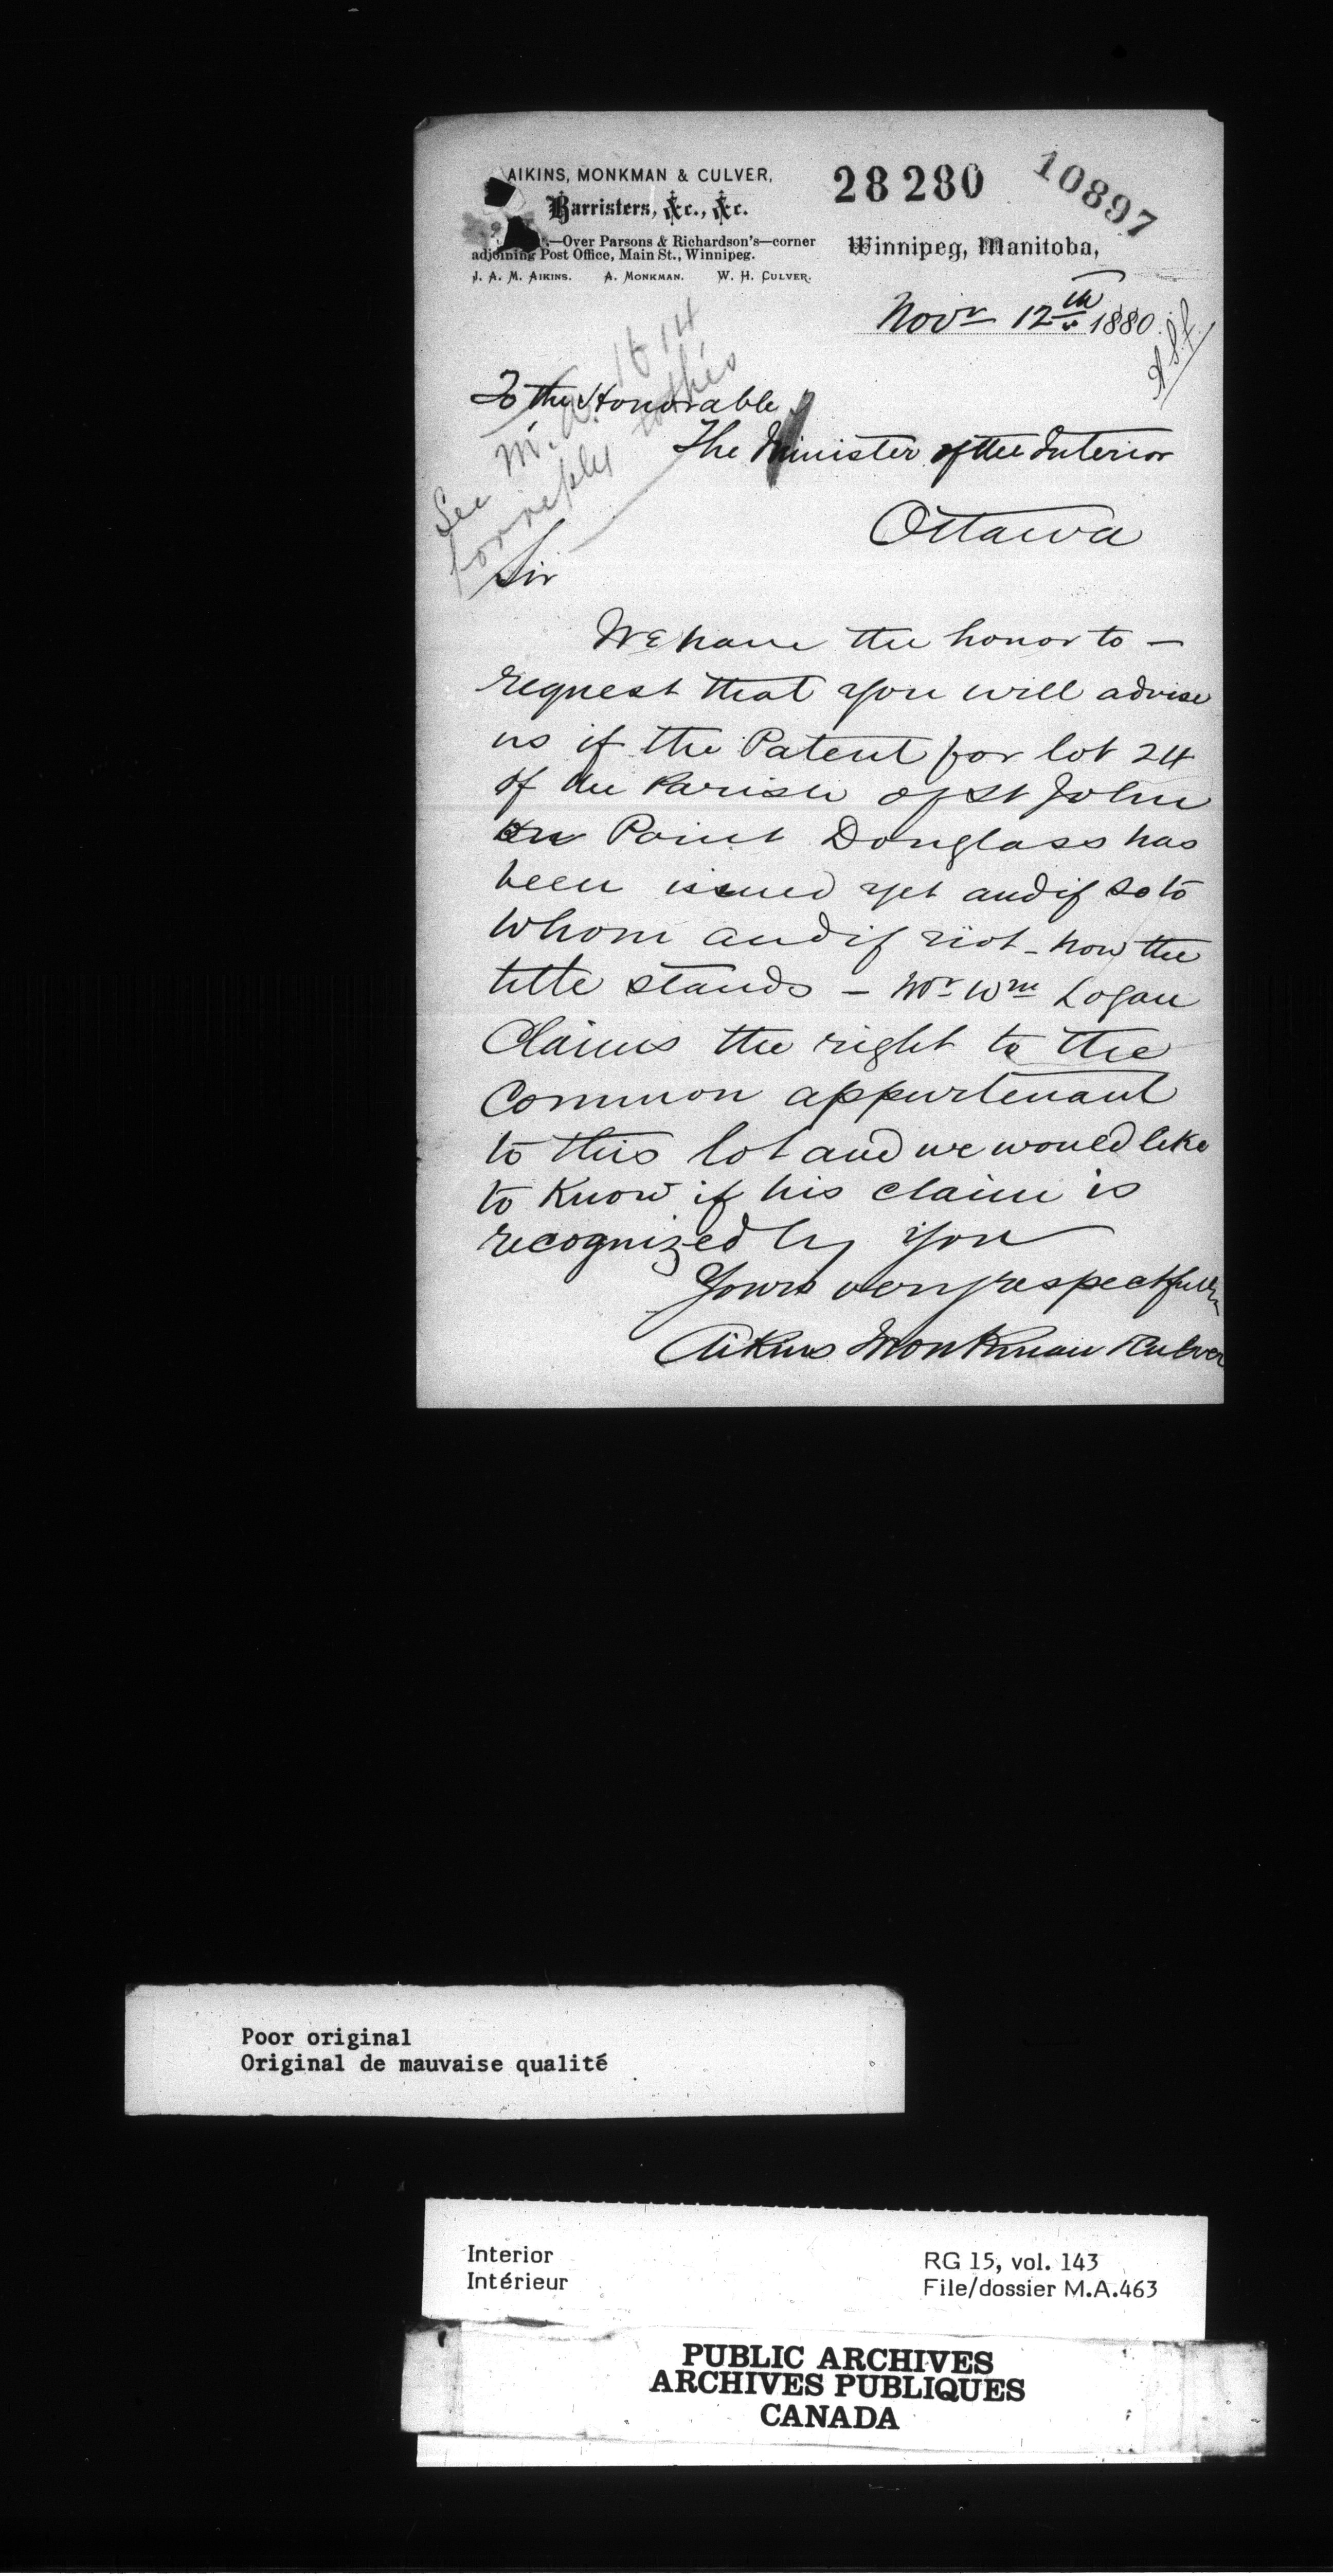 AIKINS, MONKMAN & CULVER,
Barristers, &c., &c.
—Over Parsons & Richardson's—corner
adjoining Post Office, Main St., Winnipeg.
J. A. M. AIKINS. A. MONKMAN. W. H. CULVER.
28280
10897
Winnipeg, Manitoba,
Novr 12th 1880.
See M.A. 1614
for reply to this
To the Honorable
The Minister of the Interior
Ottawa
Sir
We have the honor to —
request that you will advise
us if the Patent for lot 24
of the Parish of St John
on Point Douglass has
been issued yet and if so to
whom and if not - how the
title stands — Mr Wm Logan
Claims the right to the
Common appurtenant
to this lot and we would like
to Know if his claim is
recognized by you
Yours very respectfully
Aikins Monkman & Culver
Poor original
Original de mauvaise qualité
Interior
Intérieur
RG 15, vol. 143
File/dossier M.A.463
PUBLIC ARCHIVES
ARCHIVES PUBLIQUES
CANADA